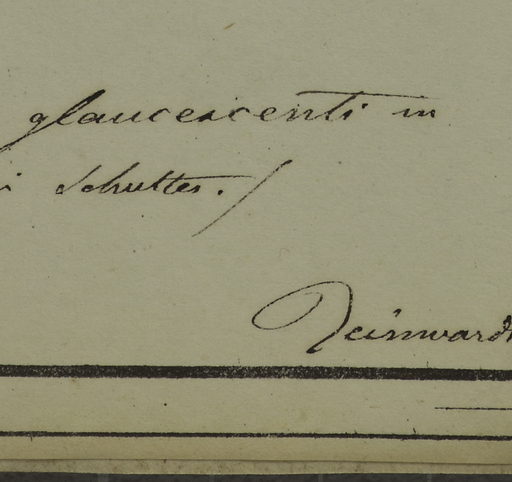 glaucescenti in
i Schultes. /
Reinwardt